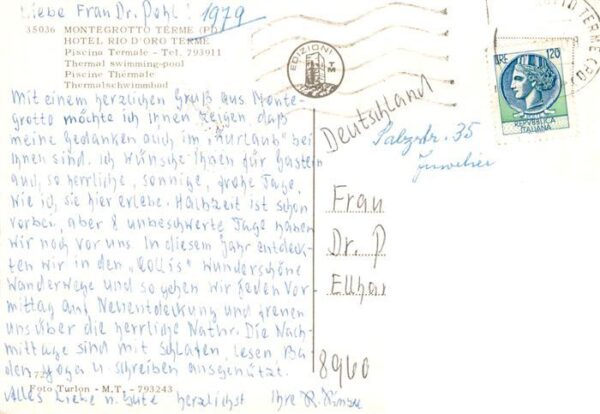 Liebe Frau Dr. Pohl! 1979
35036 MONTEGROTTO TERME (PD)
HOTEL RIO D'ORO TERME
Piscina Termale - Tel. 793911
Thermal swimming-pool
Piscine Thermale
Thermalschwimmbad
Mit einem herzlichen Gruß aus Monte-
grotto möchte ich Ihnen zeigen, daß
meine Gedanken auch im "Kurlaub" bei
Ihnen sind. Ich wünsche Ihnen für Gastein
auch so herrliche, sonnige, frohe Tage,
wie ich sie hier erlebe. Halbzeit ist schon
vorbei, aber 8 unbeschwerte Tage haben
wir noch vor uns. In diesem Jahr entdeck-
ten wir in den "Collis" wunderschöne
Wanderwege und so gehen wir jeden Vor-
mittag auf Neuentdeckung und freuen
uns über die herrliche Natur. Die Nach-
mittage sind mit Schlafen, Lesen, Ba
den, Yoga u. schreiben ausgenützt.
Foto Turlon - M.T. - 793243
Alles Liebe u. Gute herzlichst Ihre R.
EDIZIONI
TM
TERME (PD)
LIRE 120
REPVBBLICA
ITALIANA
Deutschland
35
Frau
Dr. P
Ellhar
8960